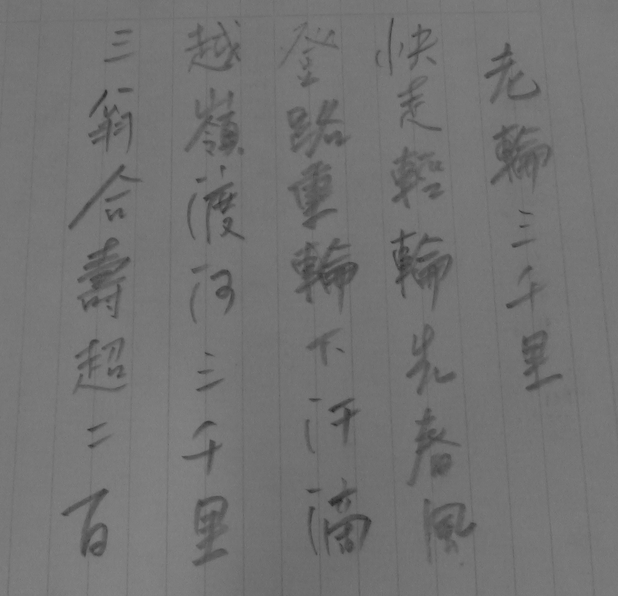 老輪三千里
快走輕輪先春風
登路重輪下汗滴
越嶺渡河三千里
三翁合壽超二百